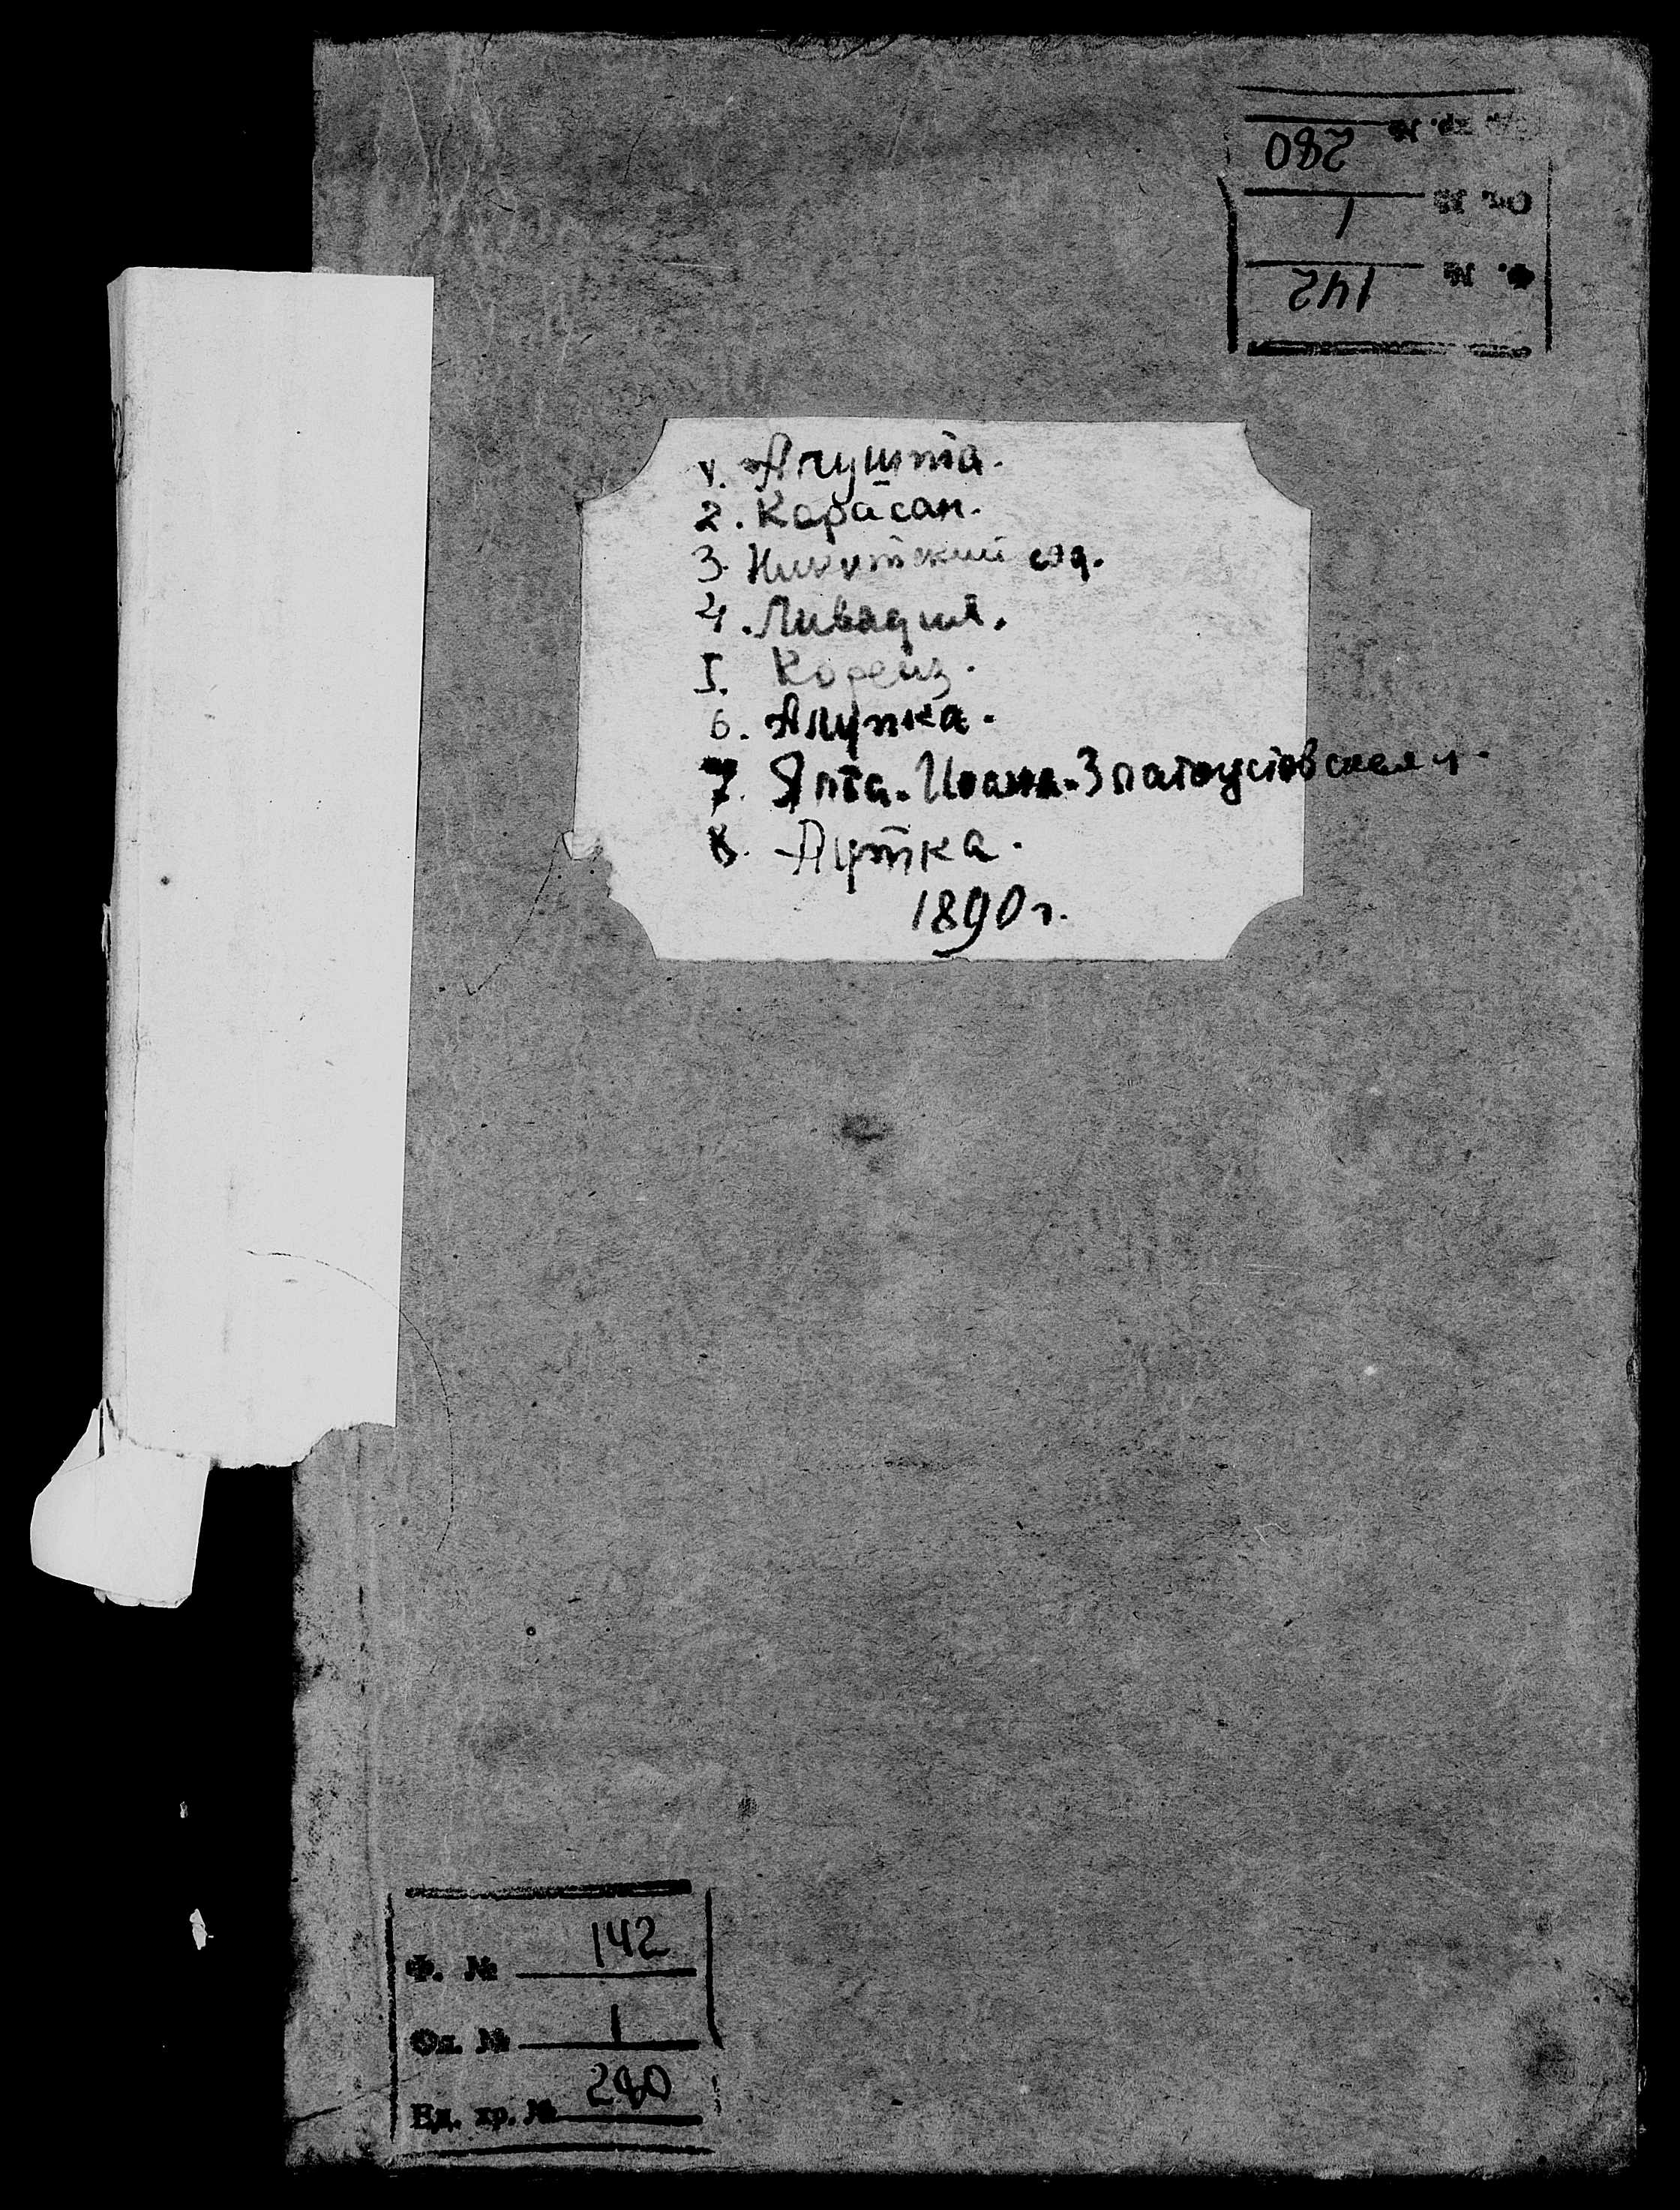 Ед. хр. № 280
Оп. № 1
Ф. № 142
1. Алушта.
2. Карасан.
3. Никитский сад.
4. Ливадия.
5. Кореиз.
6. Алупка.
7. Ялта. Иоана-Златоустовская ц.
8. Аутка.
1890 г.
Ф. № 142
Оп. № 1
Ед. хр. № 280